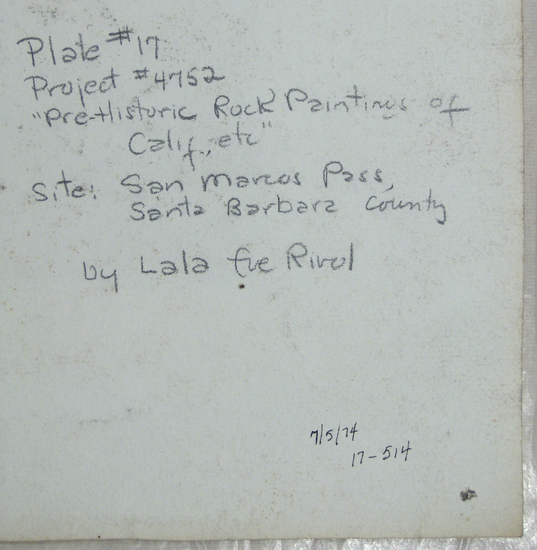 Plate #17
Project #4752
"Pre-Historic Rock Paintings of
Calif., etc"
Site: San Marcos Pass,
Santa Barbara County
by Lala Eve Rivol
7/5/74
17-514